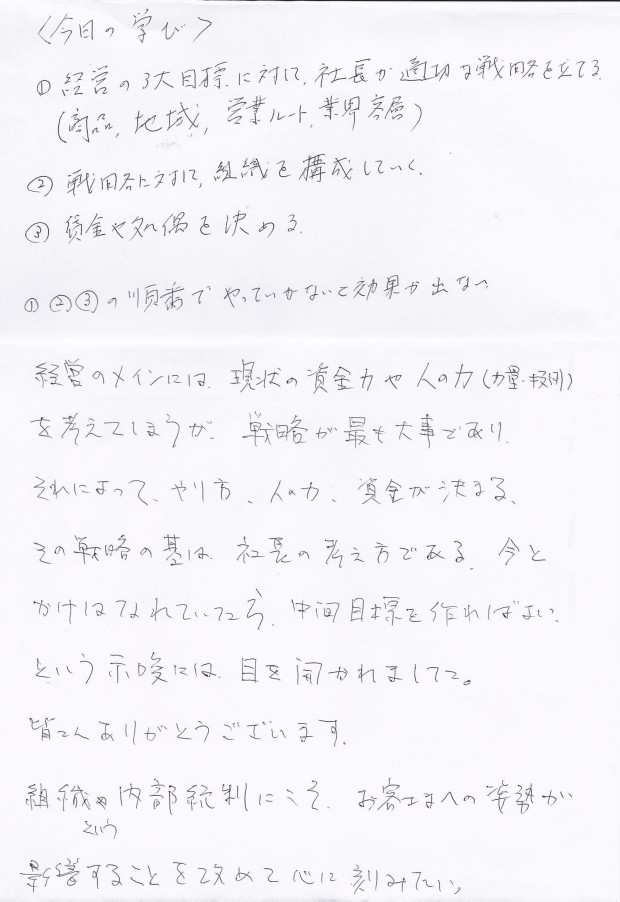 〈今日の学び〉
① 経営の3大目標に対して、社長が適切な戦略を立てる
(商品, 地域, 営業ルート, 業界客層)
② 戦略に対して, 組織を構成していく.
③ 賃金や処遇を決める.
①②③の順番でやっていかないと効果が出ない
経営のメインには 現状の資金力や人の力(力量・技術)
を考えてしまうが、戦略が最も大事であり
それによって、やり方、人の力、資金が決まる、
その戦略の基は 社長の考え方である. 今と
かけはなれていたら, 中間目標を作ればよい.
という示唆には 目を開かれました。
皆さんありがとうございます.
組織や内部統制にこそ、お客さまへの姿勢が
という
影響することを改めて心に刻みたい、